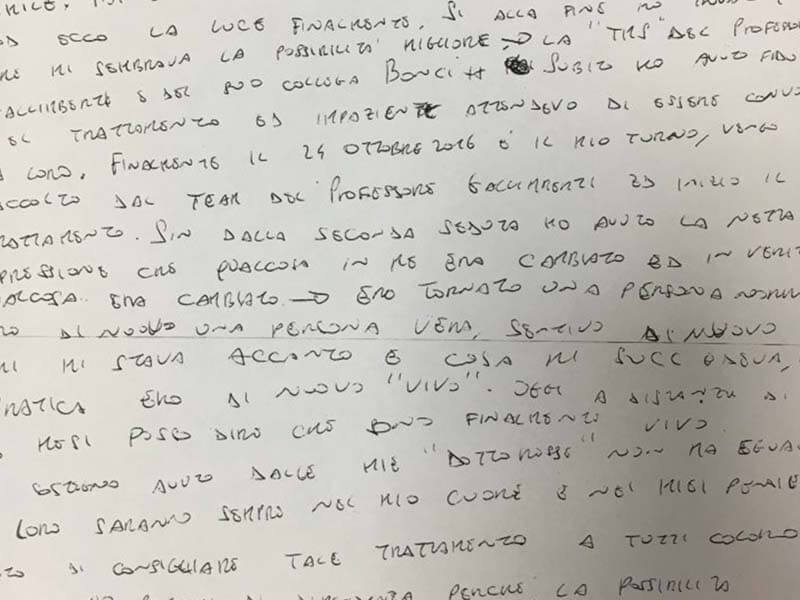 ED ECCO LA LUCE FINALMENTE. SI ALLA FINE MO
RE MI SEMBRAVA LA POSSIBILITÀ MIGLIORE → LA "TMS" DEL PROFESSO
GALLIMBERTI E DEL SUO COLLEGA BONCI SUBITO HO AVUTO FIDU
EL TRATTAMENTO ED IMPAZIENTE ATTENDEVO DI ESSERE CONVO
A LORO. FINALMENTE IL 24 OTTOBRE 2016 È IL MIO TURNO, VENGO
ACCOLTO DAL TEAM DEL PROFESSORE GALLIMBERTI ED INIZIO IL
RATTAMENTO. SIN DALLA SECONDA SEDUTA HO AVUTO LA NETTA
PRESSIONE CHE QUALCOSA IN ME ERA CAMBIATO ED IN VERIT
ALCOSA ERA CAMBIATO → ERO TORNATO UNA PERSONA NORM
RO DI NUOVO UNA PERSONA VERA, SENTIVO DI NUOVO
HI MI STAVA ACCANTO E COSA MI SUCCEDEVA,
RATICA ERO DI NUOVO "VIVO". OGGI A DISTANZA DI
MESI POSSO DIRE CHE SONO FINALMENTE VIVO.
SOSTEGNO AVUTO DALLE MIE "DOTTORESSE" NON HA EGUA
LORO SARANNO SEMPRE NEL MIO CUORE E NEI MIEI PENSIE
TO DI CONSIGLIARE TALE TRATTAMENTO A TUTTI COLORO
PERCHÈ LA POSSIBILITÀ